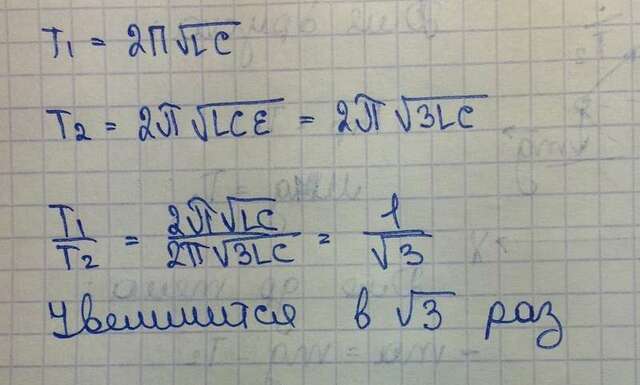 T₁ = 2π√LC
T₂ = 2π√LCε = 2π√3LC
T₁/T₂ = 2π√LC / 2π√3LC = 1/√3
Увеличится в √3 раз